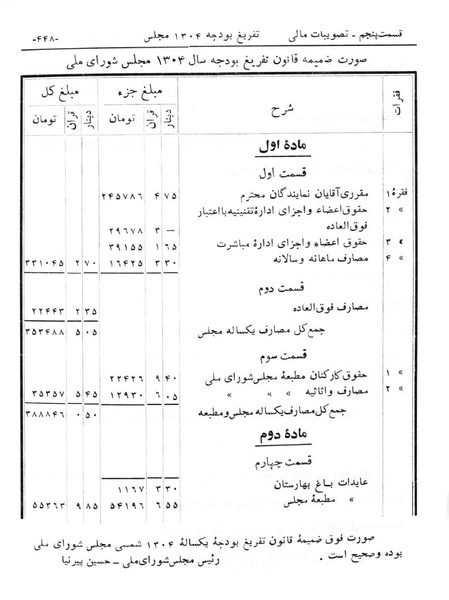 قسمت پنجم - تصویبات مالی تفریغ بودجه ۱۳۰۴ مجلس -۴۴۸-
صورت ضمیمه قانون تفریغ بودجه سال ۱۳۰۴ مجلس شورای ملی
فقرات شرح مبلغ جزء مبلغ کل
دینار قران تومان دینار قران تومان
مادۀ اول
قسمت اول
فقرۀ ۱ مقرری آقایان نمایندگان محترم ۷۵ ۴ ۲۴۵۷۸۶
» ۲ حقوق اعضاء واجزای ادارۀ تقنینیه با اعتبار
فوق العاده — ۳ ۲۹۶۷۸
» ۳ حقوق اعضاء واجزای ادارۀ مباشرت ۶۵ ۱ ۳۹۱۵۵
» ۴ مصارف ماهانه و سالانه ۳۰ ۳ ۱۶۴۲۵ ۷۰ ۲ ۳۳۱۰۴۵
قسمت دوم
مصارف فوق العاده ۳۵ ۲ ۲۲۴۴۳
جمع کل مصارف یکساله مجلس ۰۵ ۵ ۳۵۳۴۸۸
قسمت سوم
» ۱ حقوق کارکنان مطبعۀ مجلس شورای ملی ۴۰ ۹ ۲۲۴۲۶
» ۲ مصارف واثاثیه » » » ۰۵ ۶ ۱۲۹۳۰ ۴۵ ۵ ۳۵۳۵۷
جمع کل مصارف یکساله مجلس و مطبعه ۵۰ ۰ ۳۸۸۸۴۶
مادۀ دوم
قسمت چهارم
عایدات باغ بهارستان ۳۰ ۳ ۱۱۶۷
» مطبعۀ مجلس ۵۵ ۶ ۵۴۱۹۶ ۸۵ ۹ ۵۵۳۶۳
صورت فوق ضمیمۀ قانون تفریغ بودجۀ یکسالۀ ۱۳۰۴ شمسی مجلس شورای ملی
بوده وصحیح است . رئیس مجلس شورای ملی - حسین پیرنیا